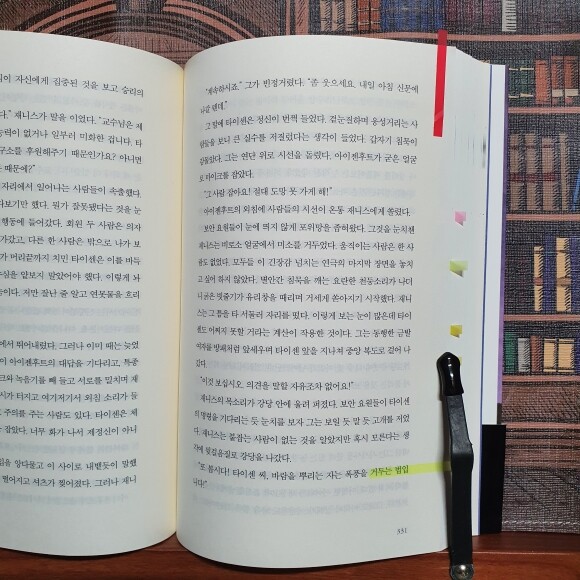 이 자신에게 집중된 것을 보고 승리의
다." 재니스가 말을 이었다. "교수님은 제
능력이 없거나 일부러 미화한 겁니다. 타
구소를 후원해주기 때문인가요? 아니면
때문에?"
자리에서 일어나는 사람들이 속출했다.
다보기만 했다. 뭔가 잘못됐다는 것을 눈
행동에 들어갔다. 회원 두 사람은 의자
가갔고, 다른 한 사람은 밖으로 나가 보
버티고 있었다.
심을 얕보지 말았어야 했다. 이렇게 놔
들이다. 저만 잘난 줄 알고 연못물을 흐리
에서 뛰어내렸다. 그러나 이미 때는 늦었
이 아이젠후트의 대답을 기다리고, 특종
크와 녹음기를 빼 들고 서로를 밀치며 제
시가 터지고 여기저기서 외침 소리가 들
주의를 주는 사람도 있다. 타이센은 제
았다. 너무 화가 나서 제정신이 아니
입을 앙다물고 이 사이로 내뱉듯이 말했
떨어지고 셔츠가 찢어졌다. 그러나 재니
"계속하시죠." 그가 빈정거렸다. "좀 웃으세요. 내일 아침 신문에
나갈 텐데."
그 말에 타이센은 정신이 번쩍 들었다. 겁에 웅성거리는 사
람들을 보니 큰 실수를 저질렀다는 생각이 들었다. 갑자기 침묵이
강물했다. 그는 연단 위로 시선을 돌렸다. 아이젠후트가 굳은 얼굴
로 마이크를 잡았다.
"그 사람 잡아요! 절대 도망 못 가게 해!"
아이젠후트의 외침에 사람들의 시선이 온통 재니스에게 쏠렸다.
보안 요원들이 눈에 띄지 않게 포위망을 좁혀왔다. 그것을 눈치챈
재니스는 비로소 얼굴에서 미소를 거두었다. 움직이는 사람은 한 사
람도 없었다. 모두들 이 긴장감 넘치는 연극의 마지막 장면을 놓치
고 싶어 하지 않았다. 별안간 침묵을 깨는 요란한 천둥소리가 나더
니 굵은 빗줄기가 유리창을 때리며 거세게 쏟아지기 시작했다. 재니
스는 그 틈을 타 서둘러 자리를 떴다. 이렇게 보는 눈이 많은데 타이
센도 어쩌지 못할 거라는 계산이 작용한 것이다. 그는 동행한 금발
여자를 방패처럼 앞세우며 타이센 앞을 지나쳐 중앙 복도로 걸어 나
갔다.
"이것 보십시오. 의견을 말할 자유조차 없어요!"
재니스의 목소리가 강당 안에 울려 퍼졌다. 보안 요원들이 타이센
의 명령을 기다리는 듯 눈치를 보자 그는 보일 듯 말 듯 고개를 저었
다. 재니스는 붙잡는 사람이 없는 것을 알았지만 혹시 모른다는 생
각에 뒷걸음질로 강당을 나갔다.
"또 봅시다! 타이센 씨, 바람을 뿌리는 자는 폭풍을 거두는 법입
니다!"
331